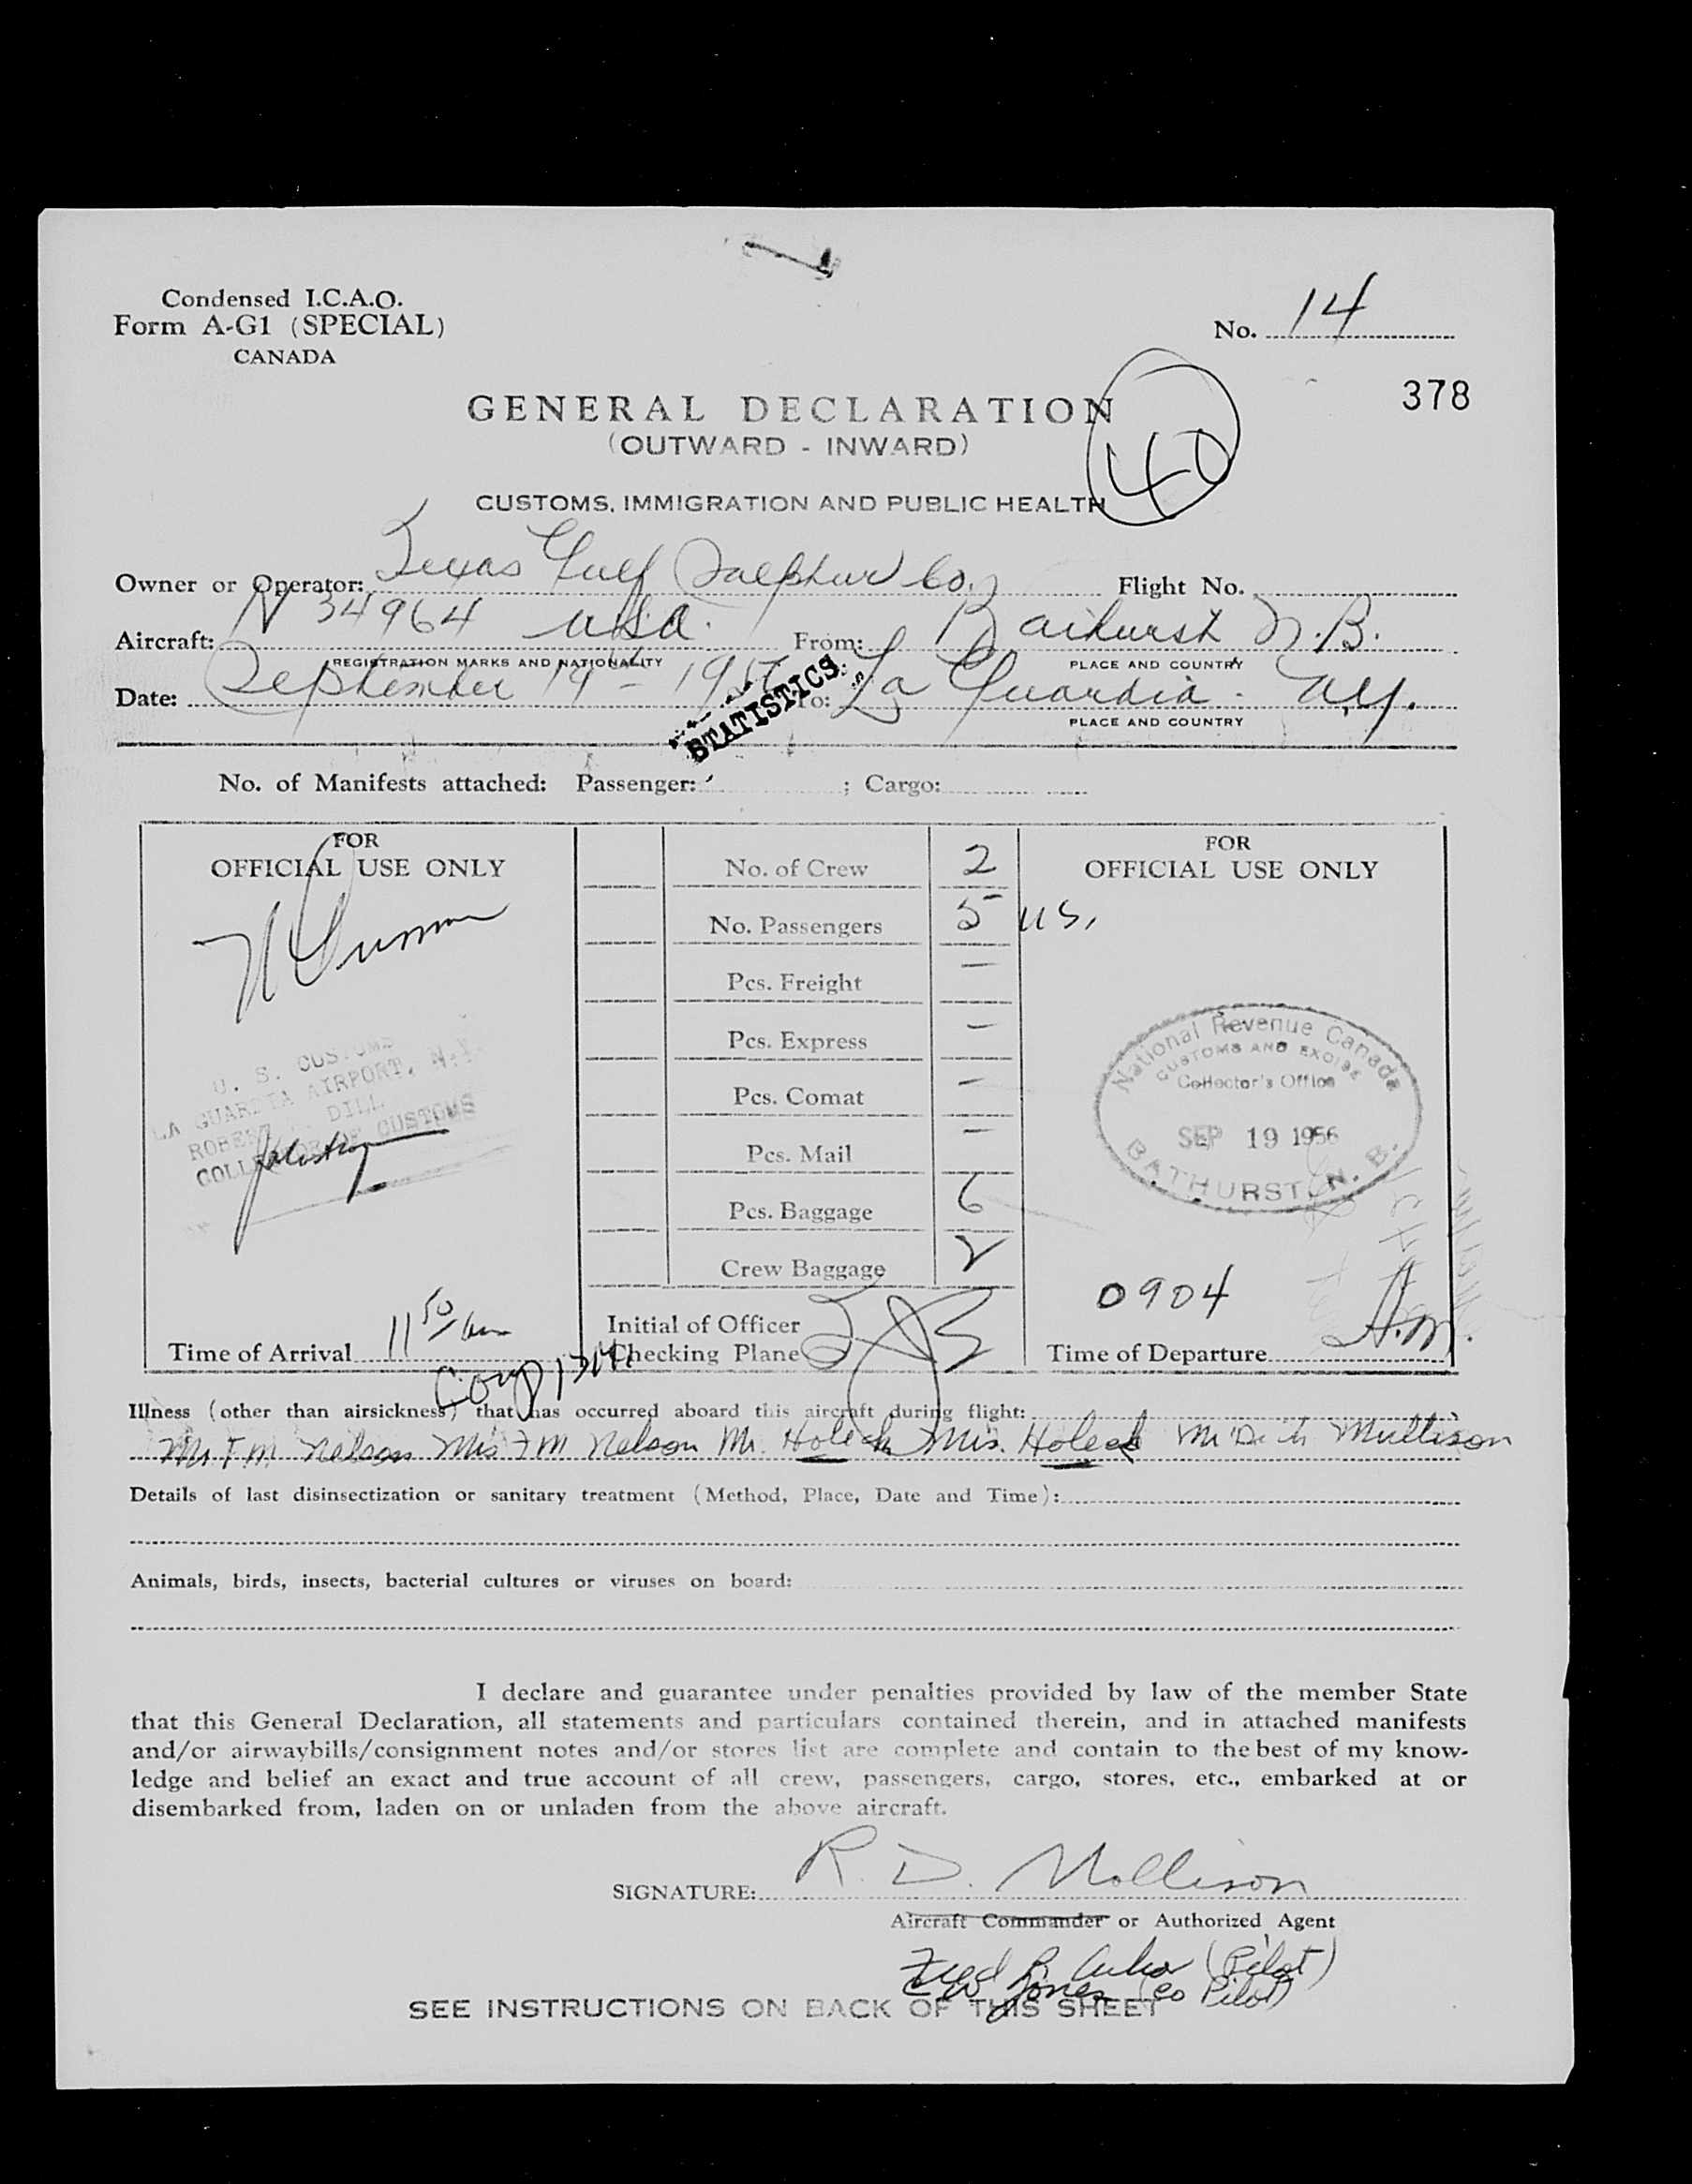 Condensed I.C.A.O.
Form A-G1 (SPECIAL)
CANADA
No. 14
378
GENERAL DECLARATION
(OUTWARD - INWARD)
40
CUSTOMS, IMMIGRATION AND PUBLIC HEALTH
Owner or Operator: Texas Gulf Sulphur Co. Flight No.
Aircraft: N 34964 USA. From: Bathurst N.B.
REGISTRATION MARKS AND NATIONALITY PLACE AND COUNTRY
Date: September 19th - 1956 To: La Guardia - N.Y.
PLACE AND COUNTRY
STATISTICS
No. of Manifests attached: Passenger: ; Cargo:
FOR
OFFICIAL USE ONLY
U. S. CUSTOMS
LA GUARDIA AIRPORT, N.Y.
ROBERT DILL
COLLECTOR OF CUSTOMS
Time of Arrival 11 50 am
No. of Crew 2
No. Passengers 5 U.S.
Pcs. Freight —
Pcs. Express —
Pcs. Comat —
Pcs. Mail —
Pcs. Baggage 6
Crew Baggage 2
Initial of Officer
Checking Plane
FOR
OFFICIAL USE ONLY
National Revenue Canada
CUSTOMS AND EXCISE
Collector's Office
SEP 19 1956
BATHURST, N. B.
0904
A.M.
Time of Departure
Illness (other than airsickness) that has occurred aboard this aircraft during flight:
Mr. F. M. Nelson Mrs F M Nelson Mr. Holeck Mrs. Holeck Mr Mullison
Details of last disinsectization or sanitary treatment (Method, Place, Date and Time):
Animals, birds, insects, bacterial cultures or viruses on board:
I declare and guarantee under penalties provided by law of the member State
that this General Declaration, all statements and particulars contained therein, and in attached manifests
and/or airwaybills/consignment notes and/or stores list are complete and contain to the best of my know-
ledge and belief an exact and true account of all crew, passengers, cargo, stores, etc., embarked at or
disembarked from, laden on or unladen from the above aircraft.
SIGNATURE: R. D. Mollison
Aircraft Commander or Authorized Agent
Fred (Pilot)
Jones (Co Pilot)
SEE INSTRUCTIONS ON BACK OF THIS SHEET